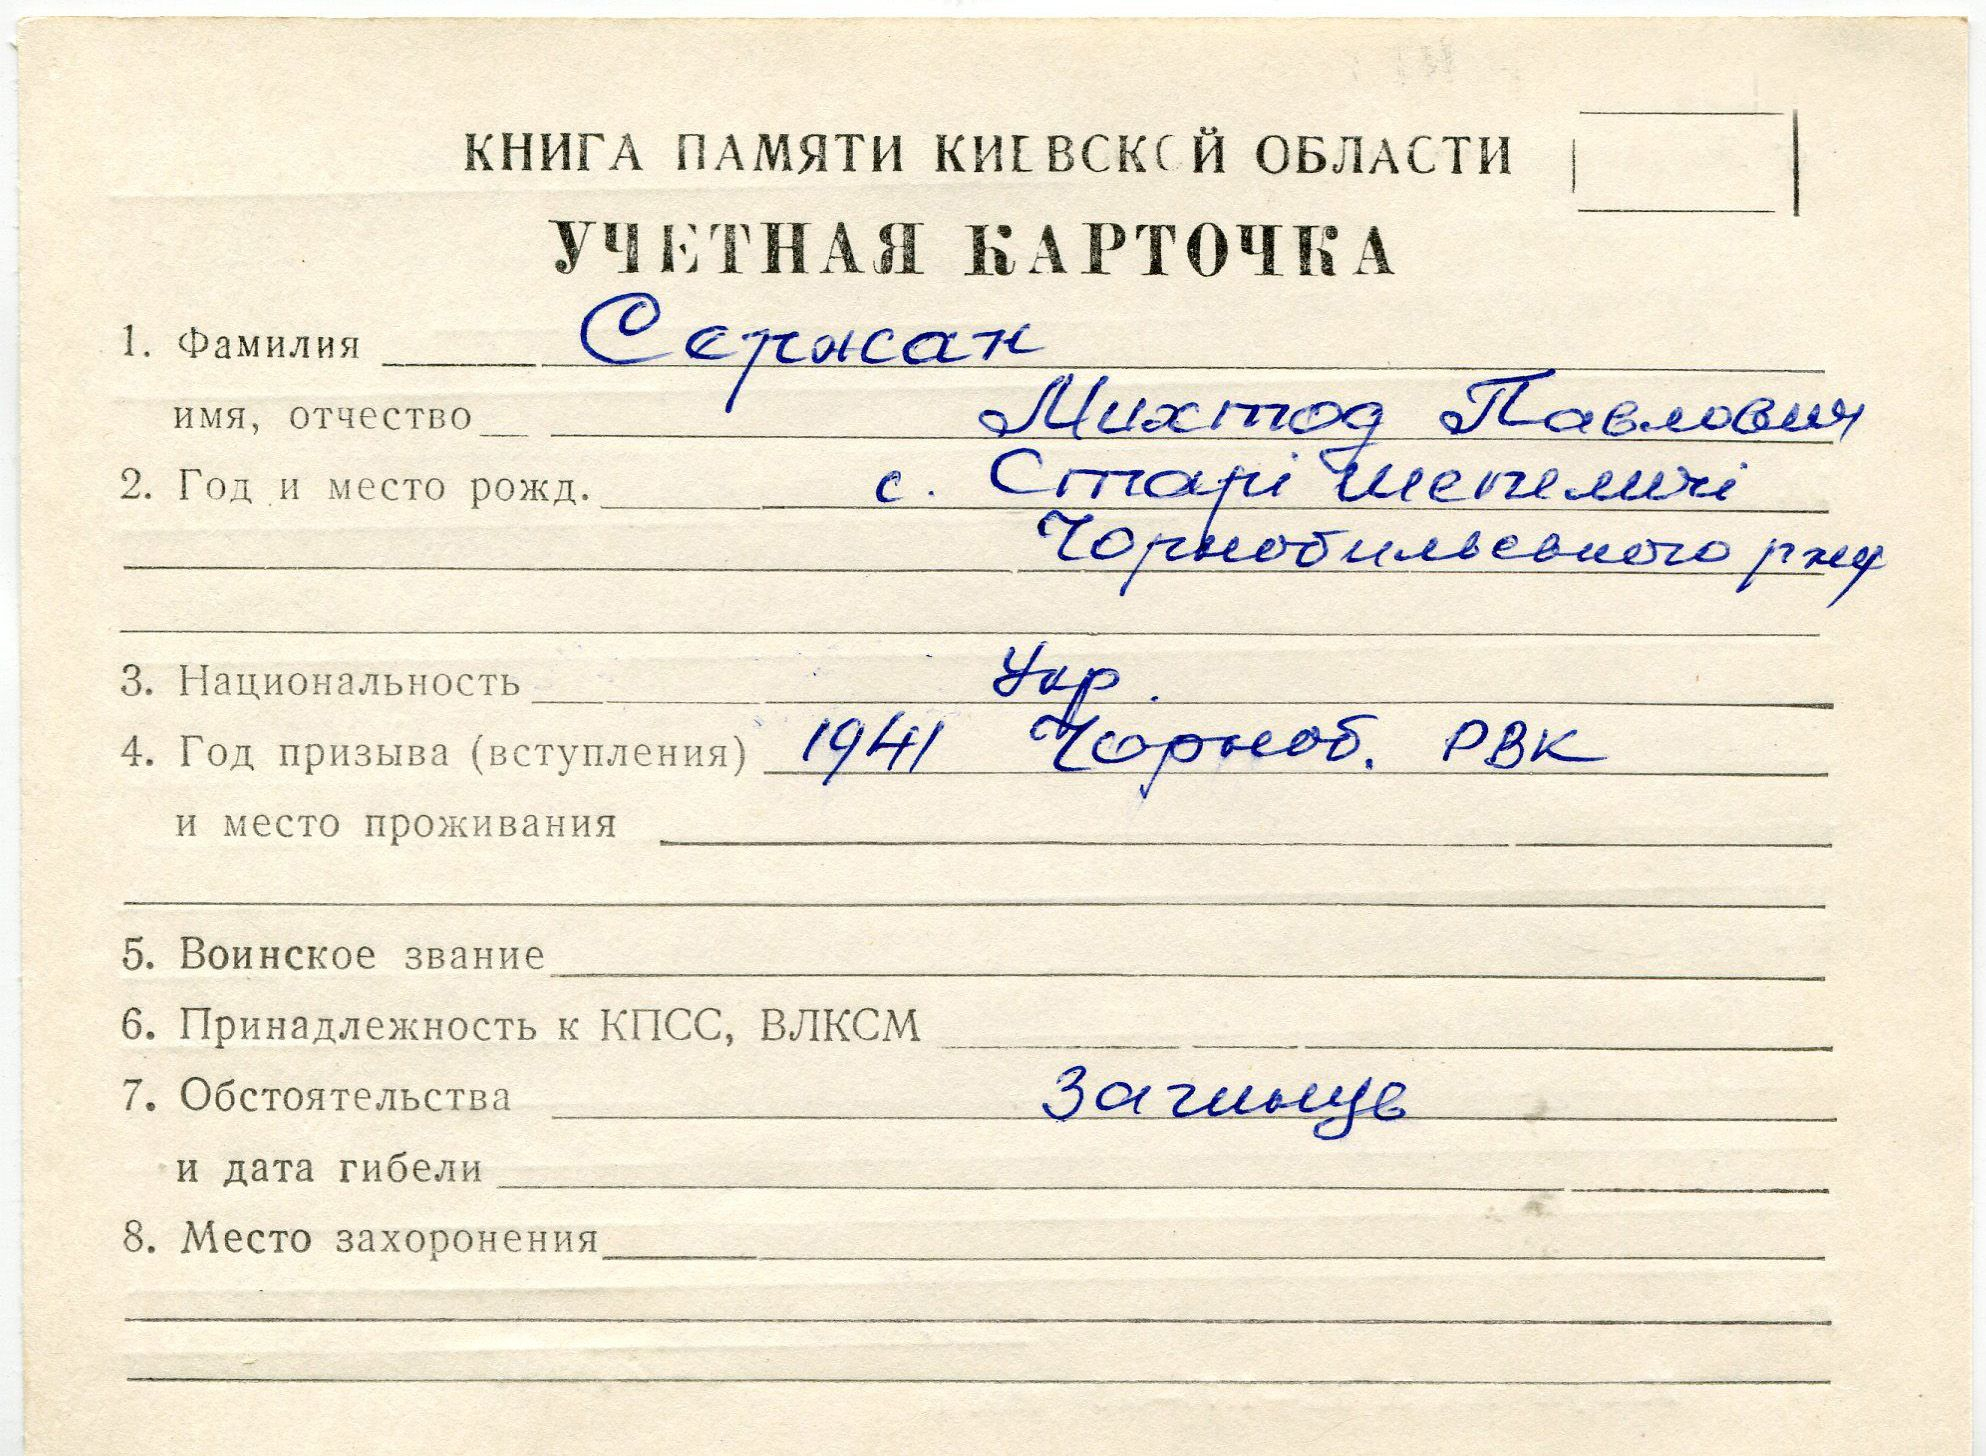 КНИГА ПАМЯТИ КИЕВСКОЙ ОБЛАСТИ
УЧЕТНАЯ КАРТОЧКА
1. Фамилия Сержан
имя, отчество Михтод Павлович
2. Год и место рожд. с. Старі Шепеличі
Чорнобильського р-ну
3. Национальность Укр.
4. Год призыва (вступления) 1941 Чорноб. РВК
и место проживания
5. Воинское звание
6. Принадлежность к КПСС, ВЛКСМ
7. Обстоятельства Загинув
и дата гибели
8. Место захоронения